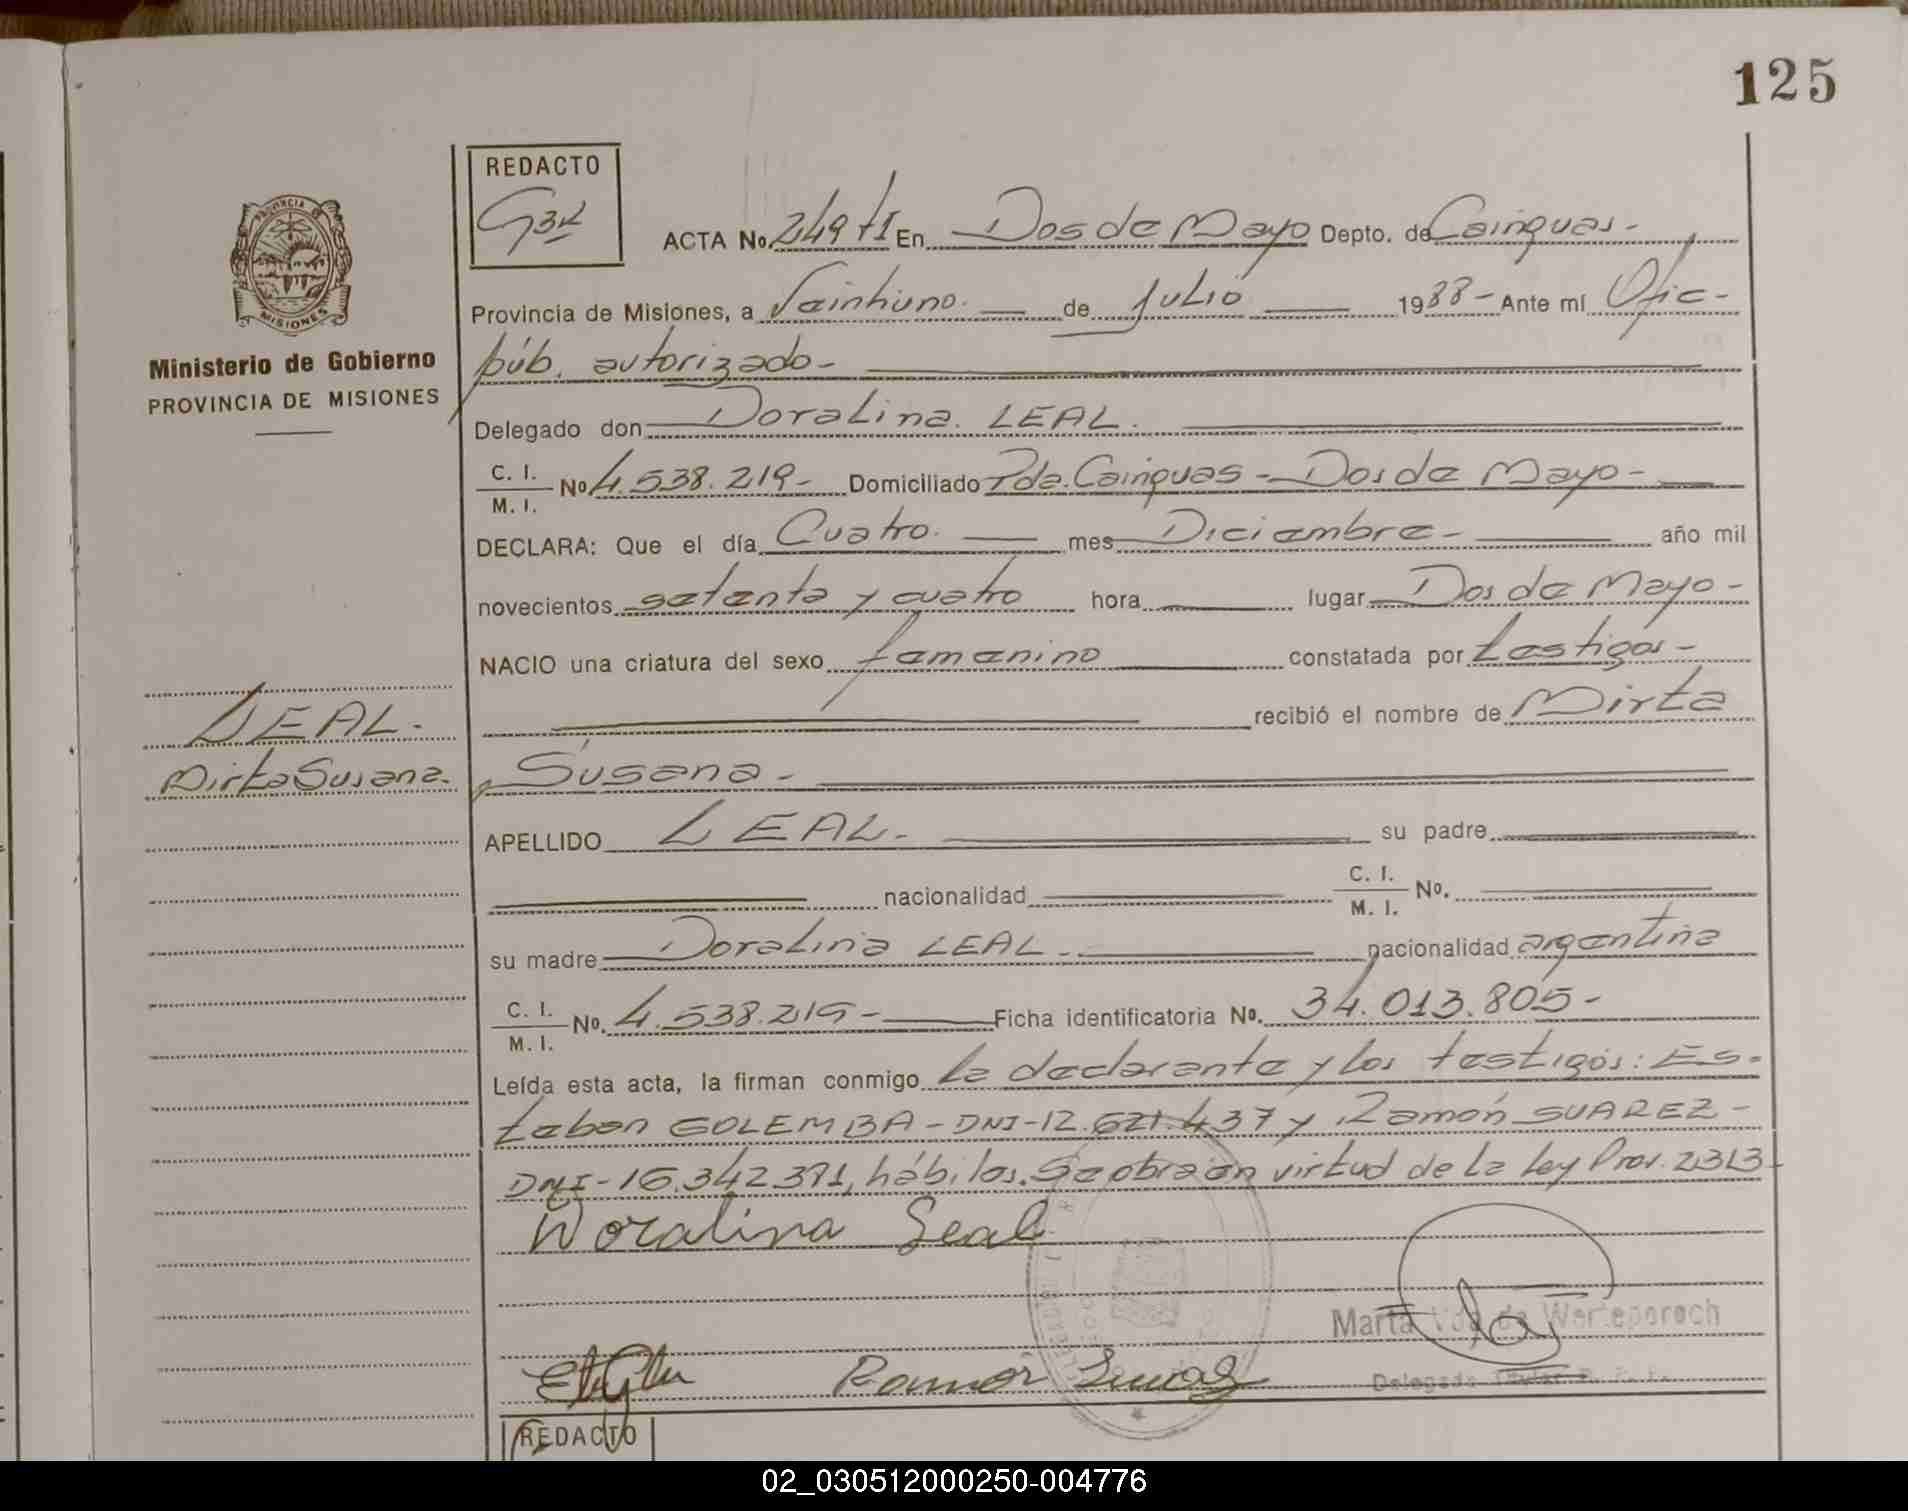 125
REDACTO
ACTA No. 249 tI En Dos de Mayo Depto. de Cainguas.-
PROVINCIA DE
MISIONES
Provincia de Misiones, a Veintiuno. de Julio 1988- Ante mí Ofic-
Ministerio de Gobierno
PROVINCIA DE MISIONES
púb. autorizado-
Delegado don Doralina. LEAL.
C. I.
M. I. No 4.538.219- Domiciliado Pda. Cainguas - Dos de Mayo-
DECLARA: Que el día Cuatro. mes Diciembre- año mil
novecientos setenta y cuatro hora lugar Dos de Mayo-
NACIO una criatura del sexo femenino constatada por testigos-
recibió el nombre de Mirta
LEAL.-
Mirta Susana.
Susana-
APELLIDO LEAL.- su padre
nacionalidad C. I.
M. I. No.
su madre Doralina LEAL.- nacionalidad argentina
C. I.
M. I. No. 4.538.219- Ficha identificatoria No. 34.013.805-
Leída esta acta, la firman conmigo la declarante y los testigos: Es-
teban GOLEMBA - DNI-12.621.437 y Ramón SUAREZ-
DNI-16.342.391, hábiles. Se obra en virtud de la Ley Prov. 2313-
Doralina Leal
Marta Vda de Werleporoch
Ramon Suarez
Delegado Titular
REDACTO
02_030512000250-004776